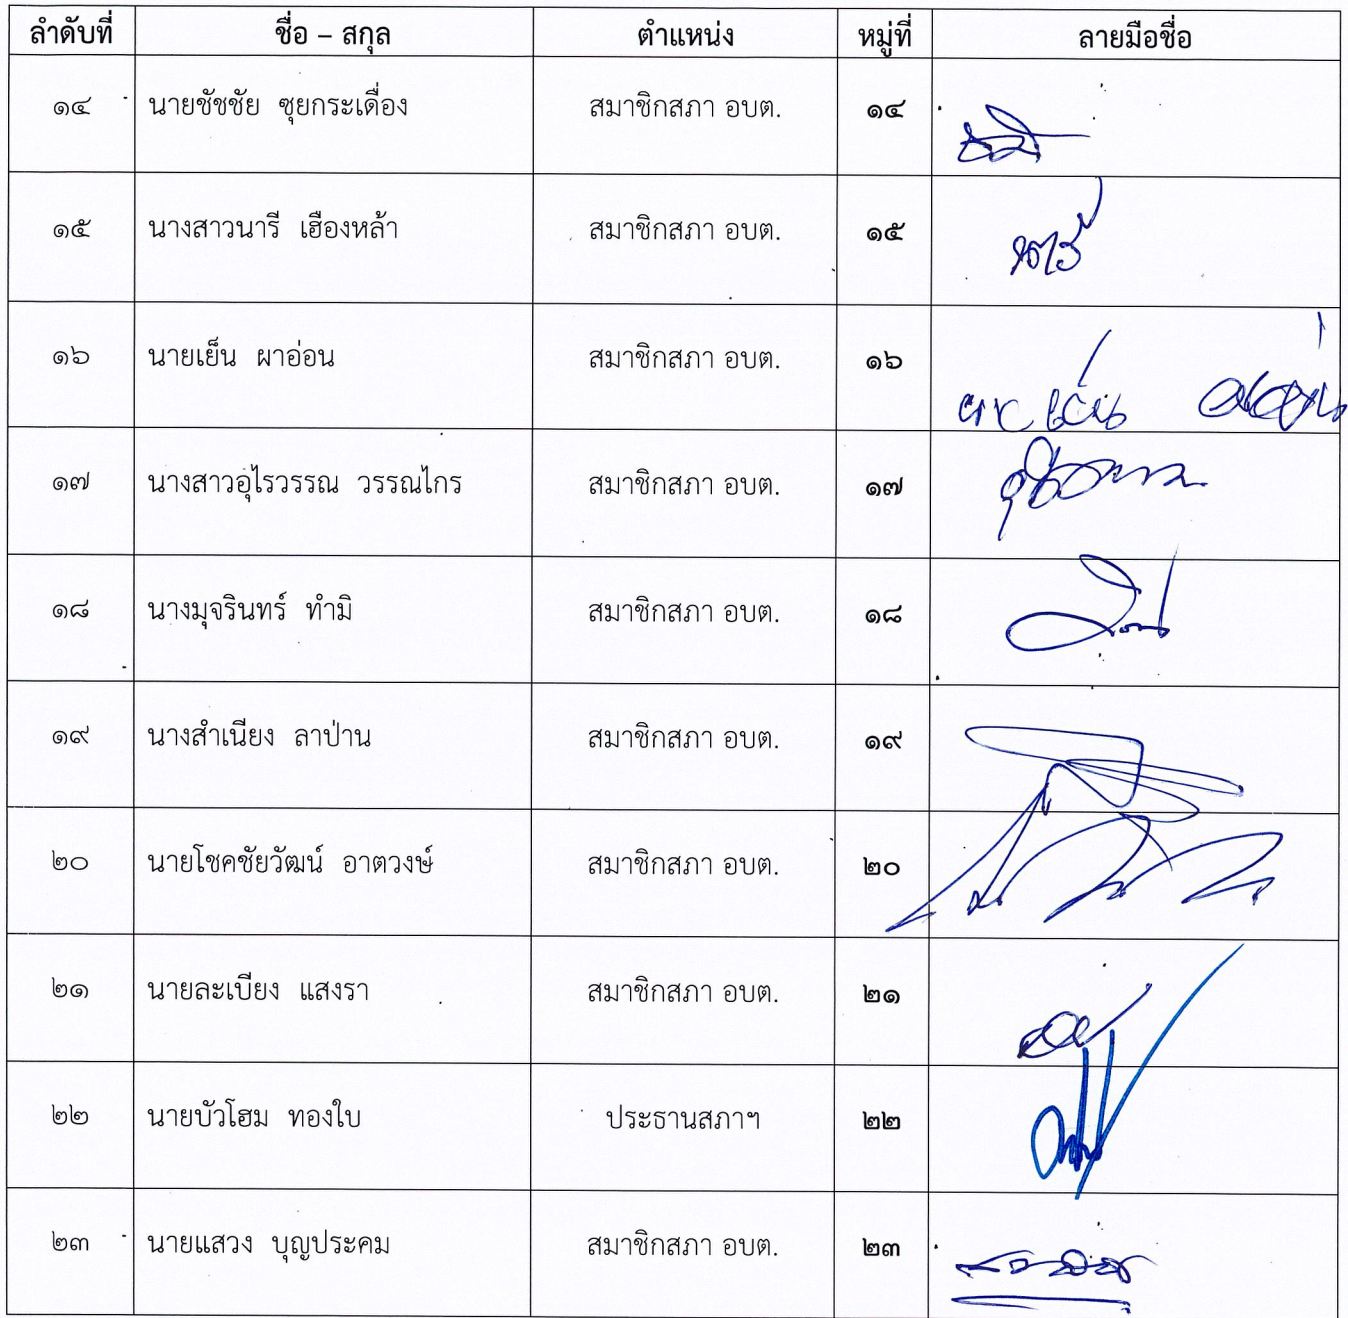 ลำดับที่ ชื่อ – สกุล ตำแหน่ง หมู่ที่ ลายมือชื่อ
๑๔ นายชัชชัย ซุยกระเดื่อง สมาชิกสภา อบต. ๑๔
๑๕ นางสาวนารี เฮืองหล้า สมาชิกสภา อบต. ๑๕
๑๖ นายเย็น ผาอ่อน สมาชิกสภา อบต. ๑๖
๑๗ นางสาวอุไรวรรณ วรรณไกร สมาชิกสภา อบต. ๑๗
๑๘ นางมุจรินทร์ ทำมิ สมาชิกสภา อบต. ๑๘
๑๙ นางสำเนียง ลาป่าน สมาชิกสภา อบต. ๑๙
๒๐ นายโชคชัยวัฒน์ อาตวงษ์ สมาชิกสภา อบต. ๒๐
๒๑ นายละเบียง แสงรา สมาชิกสภา อบต. ๒๑
๒๒ นายบัวโฮม ทองใบ ประธานสภาฯ ๒๒
๒๓ นายแสวง บุญประคม สมาชิกสภา อบต. ๒๓